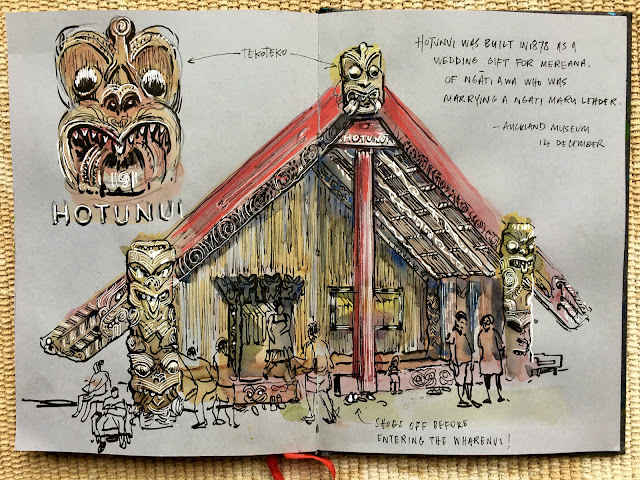 TEKOTEKO
HOTUNUI WAS BUILT IN 1878 AS A
WEDDING GIFT FOR MEREANA,
OF NGATI AWA WHO WAS
MARRYING A NGATI MARU LEADER.
—AUCKLAND MUSEUM
14 DECEMBER
HOTUNUI
HOTUNUI
SHOES OFF BEFORE
ENTERING THE WHARENUI!